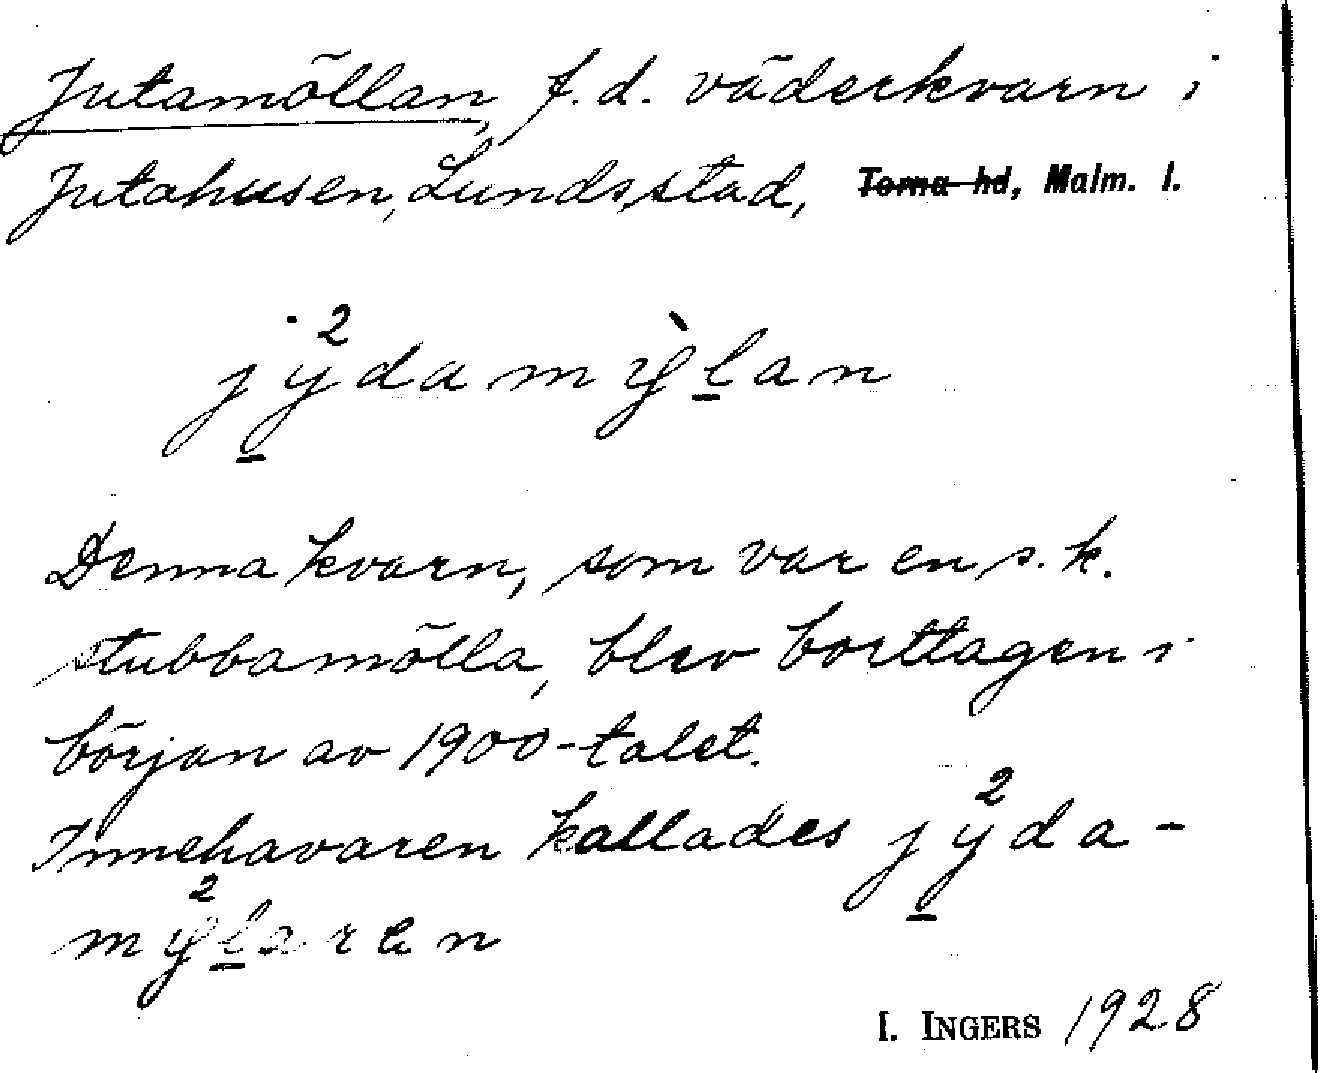 Jutamöllan, f.d. väderkvarn i
Jutahusen, Lunds stad, ~~Torna hd~~, Malm. l.
jy̲²damỳl̲an
Denna kvarn, som var en s.k.
stubbamölla, blev borttagen i
början av 1900-talet.
Innehavaren kallades jy̲²da-
my²l̲aren
I. INGERS 1928